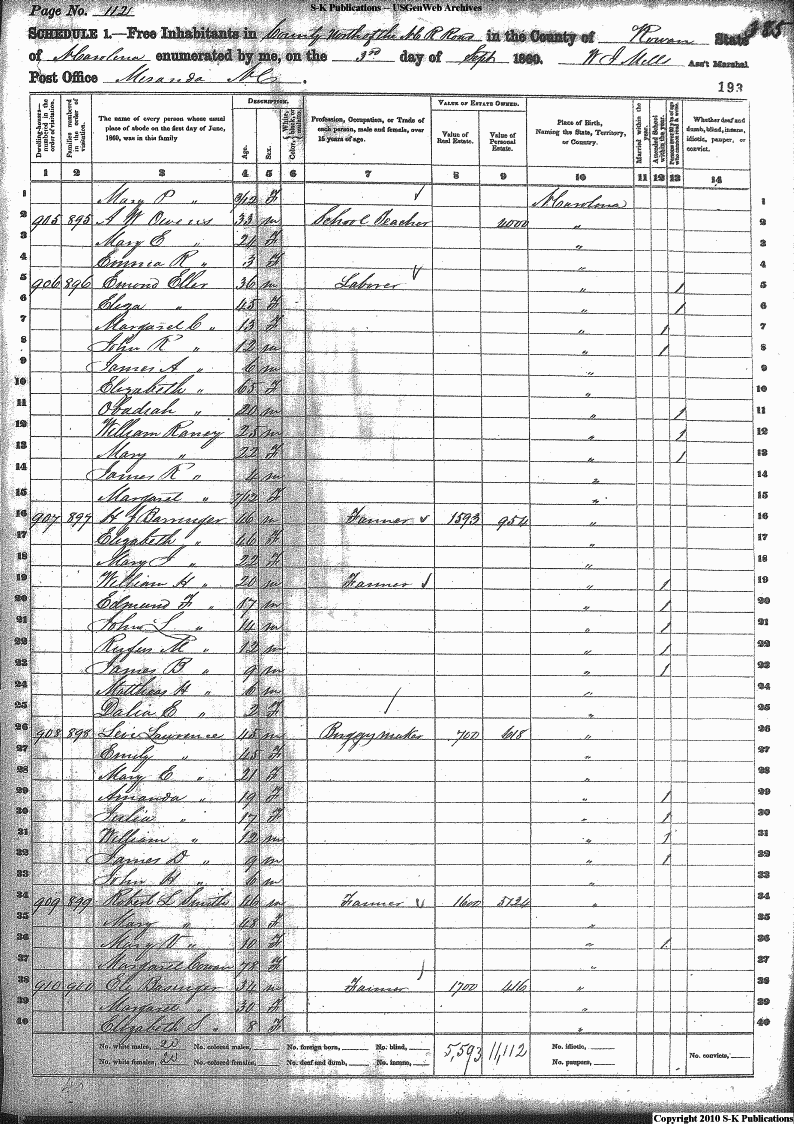 S-K Publications – USGenWeb Archives
Page No. 1121
385
SCHEDULE 1.—Free Inhabitants in County North of the N C R Road in the County of Rowan State
of N Carolina enumerated by me, on the 3rd day of Sept 1860. W J Mills Ass't Marshal
Post Office Miranda N C.
193
Dwelling-houses—numbered in the order of visitation.
Families numbered in the order of visitation.
The name of every person whose usual place of abode on the first day of June, 1860, was in this family
DESCRIPTION.
Age.
Sex.
Color, { White, black, or mulatto. }
Profession, Occupation, or Trade of each person, male and female, over 15 years of age.
VALUE OF ESTATE OWNED.
Value of Real Estate.
Value of Personal Estate.
Place of Birth, Naming the State, Territory, or Country.
Married within the year.
Attended School within the year.
Whether deaf and dumb, blind, insane, idiotic, pauper, or convict.
1 2 3 4 5 6 7 8 9 10 11 12 13 14
1 Mary P " 3/12 F N Carolina 1
2 905 895 A W Owens 33 m School Teacher 4000 " 2
3 Mary E " 21 F " 3
4 Emma R " 3 F " 4
5 906 896 Emond Eller 36 m Laborer " / 5
6 Eliza " 45 F " / 6
7 Margaret C " 13 F " / 7
8 John R " 12 m " / 8
9 James A " 6 m " 9
10 Elizabeth " 65 F " 10
11 Obadiah " 20 m " / 11
12 William Raney 25 m " / 12
13 Mary " 22 F " / 13
14 James R " 4 m " 14
15 Margaret " 7/12 F " 15
16 907 897 H J Barringer 46 m Farmer 1593 954 " 16
17 Elizabeth " 46 F " 17
18 Mary J " 22 F " 18
19 William H " 20 m Farmer " / 19
20 Edmund F " 17 m " / 20
21 John L " 14 m " / 21
22 Rufus M " 12 m " / 22
23 James B " 9 m " / 23
24 Matthias H " 6 m " 24
25 Dalia E " 2 F 25
26 908 898 Levi Lawrence 45 m Buggymaker 700 618 " 26
27 Emily " 45 F " 27
28 Mary E " 21 F " 28
29 Amanda " 19 F " / 29
30 Julia " 17 F " / 30
31 William " 12 m " / 31
32 James D " 9 m " / 32
33 John H " 6 m " 33
34 909 899 Robert L Smith 46 m Farmer 1600 5124 " 34
35 Mary " 48 F " 35
36 Mary V " 10 F " / 36
37 Margaret Cowan 78 F " 37
38 910 900 Eli Basinger 34 m Farmer 1700 416 " 38
39 Margaret " 30 F " 39
40 Elizabeth S " 8 F " 40
No. white males, 20 No. colored males, No. foreign born, No. blind, 5,593 11,112 No. idiotic,
No. white females, 20 No. colored females, No. deaf and dumb, No. insane, No. paupers, No. convicts,
Copyright 2010 S-K Publications